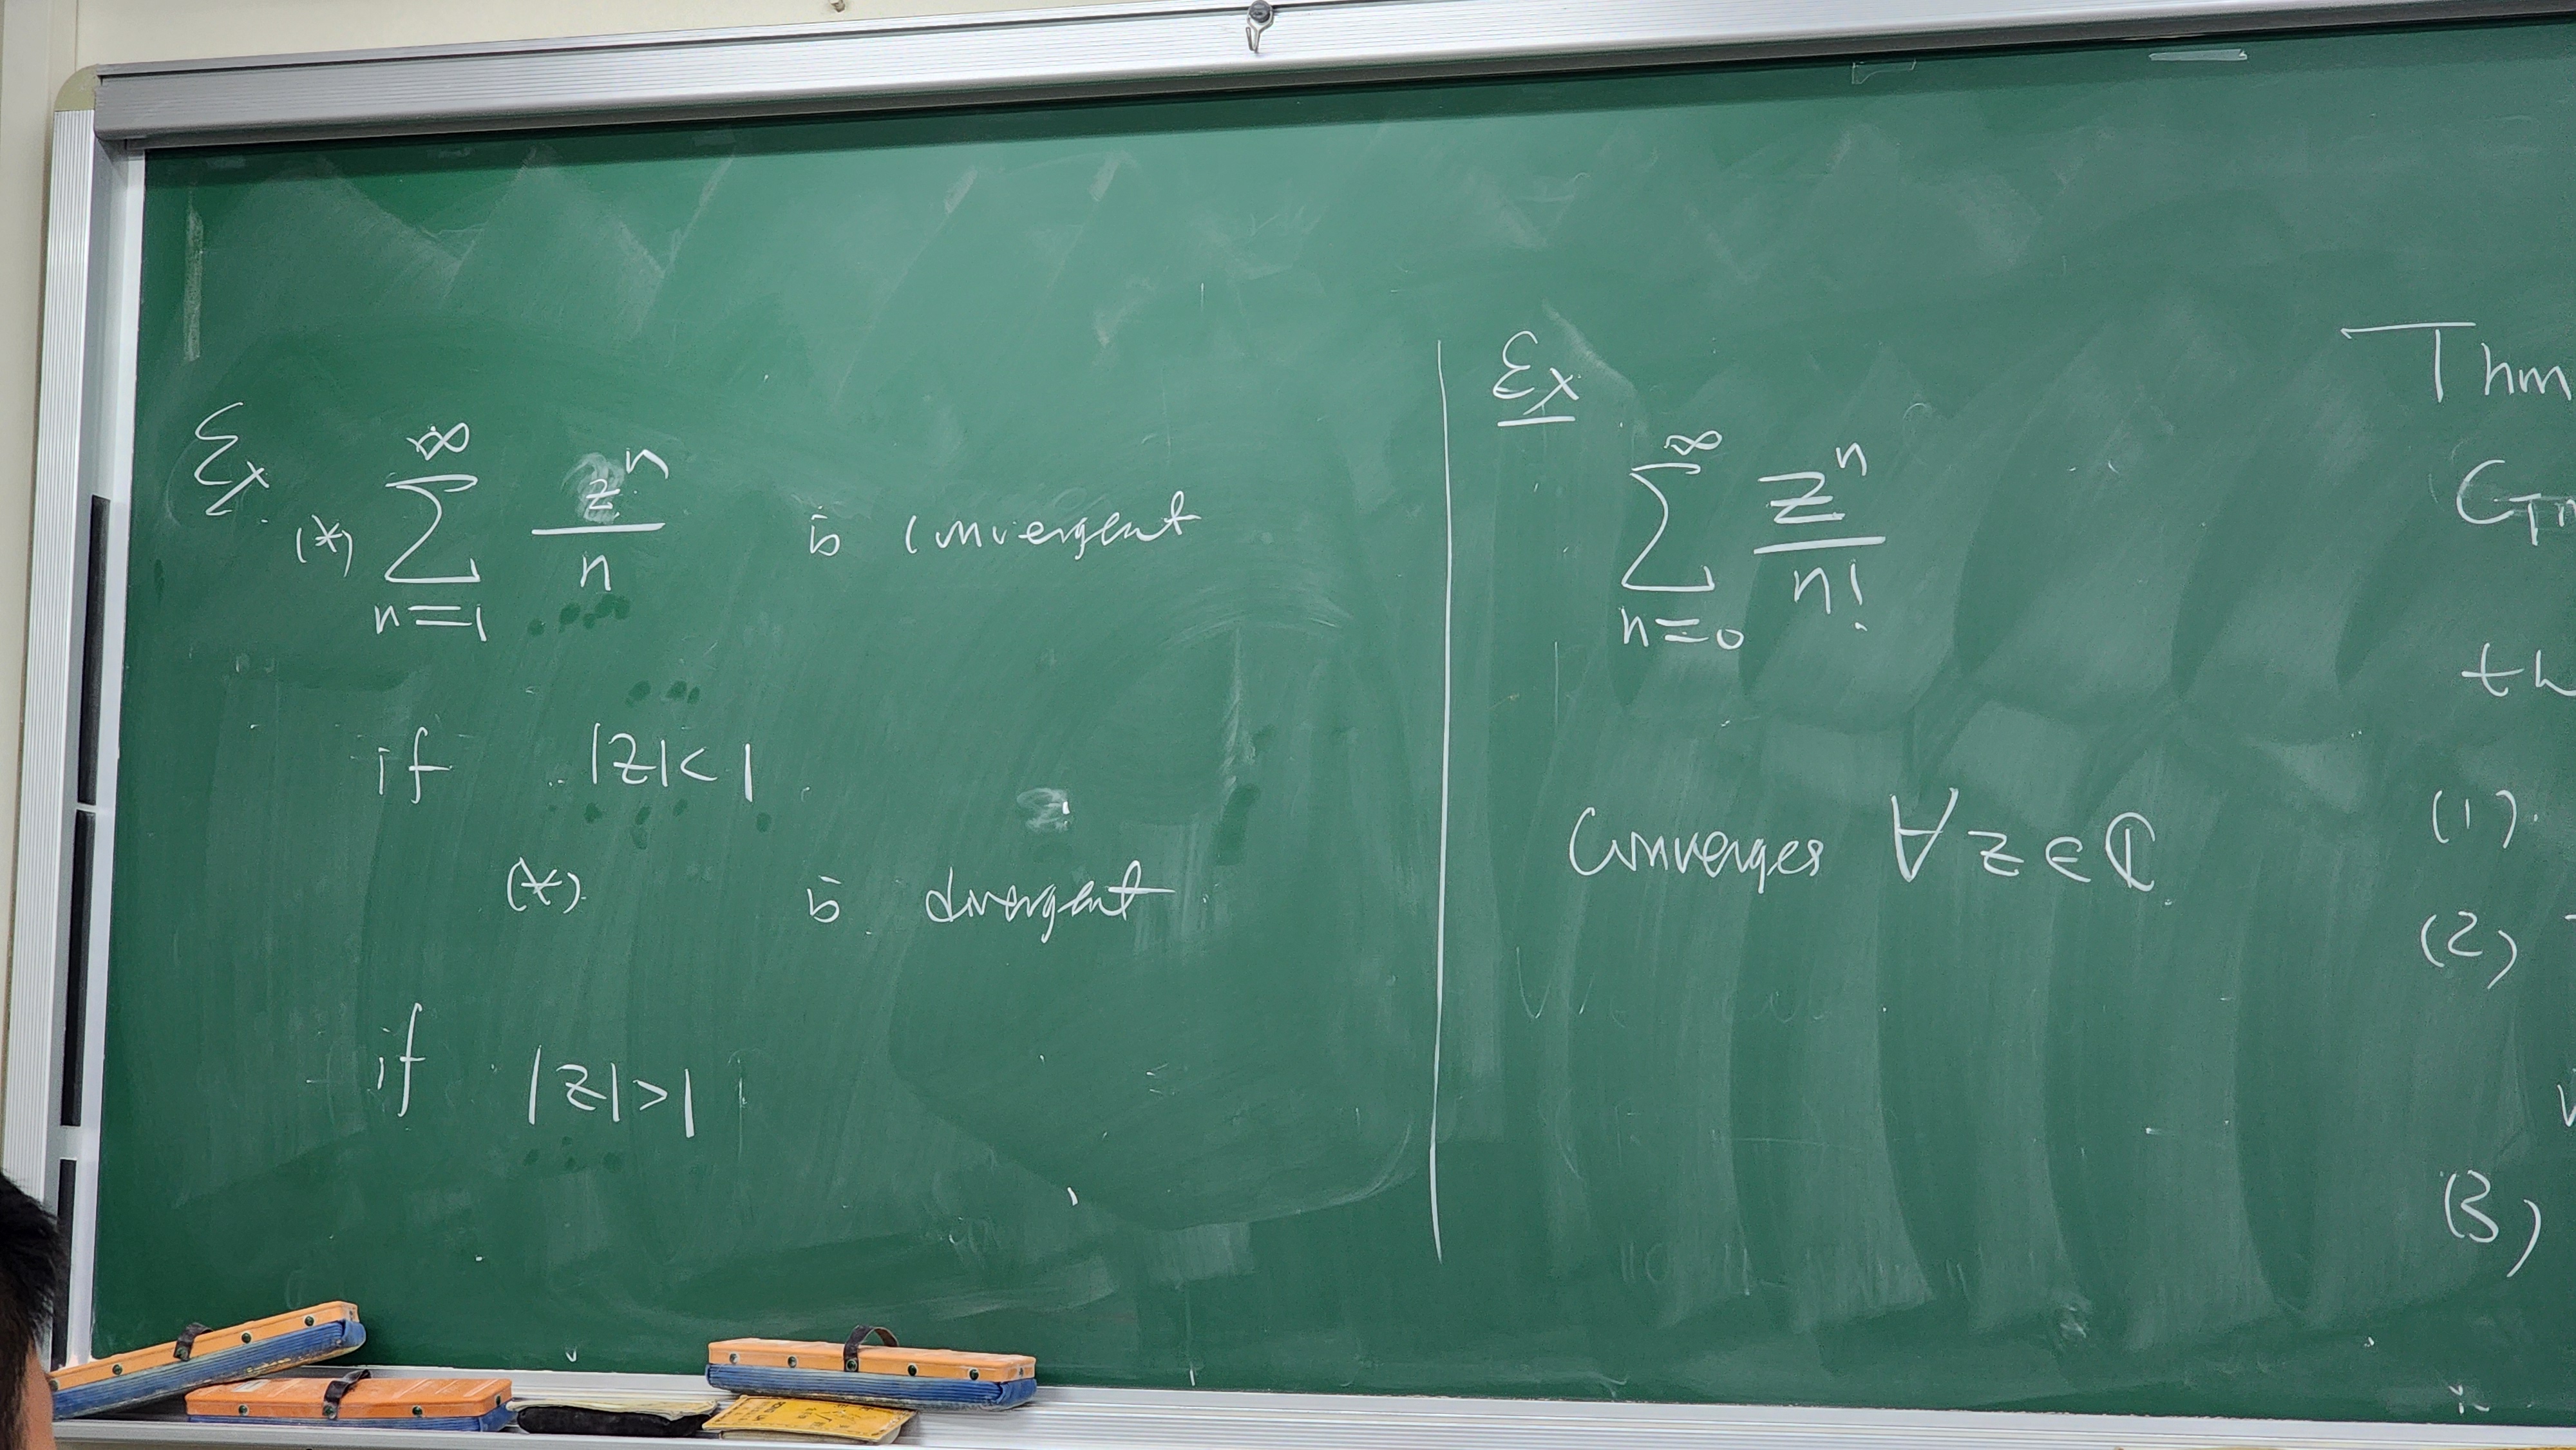 Ex (*) ∞ ∑ n=1 z^n / n is convergent
if |z|<1
(*) is divergent
if |z|>1
Ex
∞ ∑ n=0 z^n / n!
Converges ∀ z ∈ ℂ
Thm
th
(1)
(2)
(3)